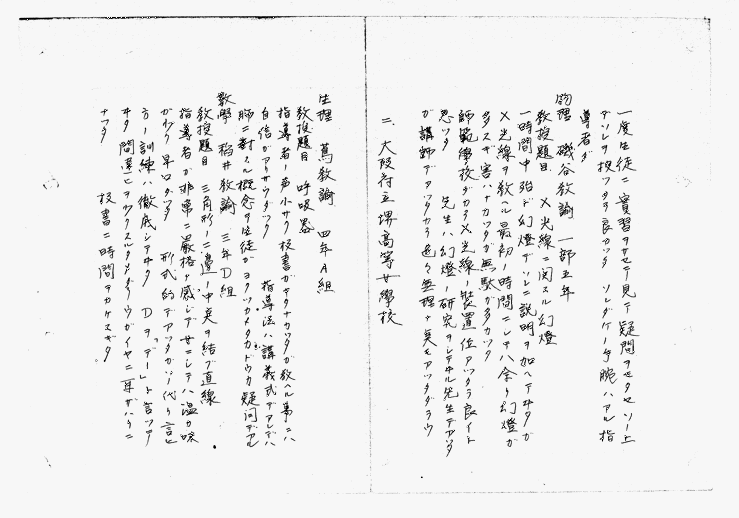 一度生徒ニ實習ヲサセテ見テ疑問ヲモタセソノ上
デソレヲ授ケタラ良カッタ ソレダケノ手腕ハアル指
導者ダ
物理 磯谷敎諭 一部五年
敎授題目 X光線ニ関スル幻燈
一時間中殆ド幻燈デソレニ説明ヲ加ヘテヰタガ
X光線ヲ敎ヘル最初ノ時間ニシテハ余リ幻燈ガ
多スギ害ハナカッタガ無駄ガ多カッタ
師範學校ダカラX光線ノ裝置位アッタラ良イト
思ッタ 先生ハ幻燈ノ研究ヲシテヰル先生デアッタ
ガ講師デアッタカラ色々無理ナ点モアッタダラウ
二、大阪府立堺高等女學校
生理 蔦敎諭 四年A組
敎授題目 呼吸器
指導者ノ声小サク板書ガキタナカッタガ敎ヘル事ニハ
自信ガアリサウダッタ 指導法ハ講義式デアレデハ
肺ニ對スル概念ヲ生徒ガヨクツカメタカドウカ疑问デアル
数學 稻井敎諭 三年D組
敎授題目 三角形ノ二邊ノ中点ヲ結ブ直線
指導者ガ非常ニ嚴格ナ感ジデサニシテハ温カ味
ガナク早口ダッタ 形式的デアッタガソノ代リ言ヒ
方ノ訓練ハ徹底シテヰタ Dヲ「デー」ト言ッテ
ヰタ 間違ヒヲ
ナッタ 板書ニ時間ヲカケスギタ